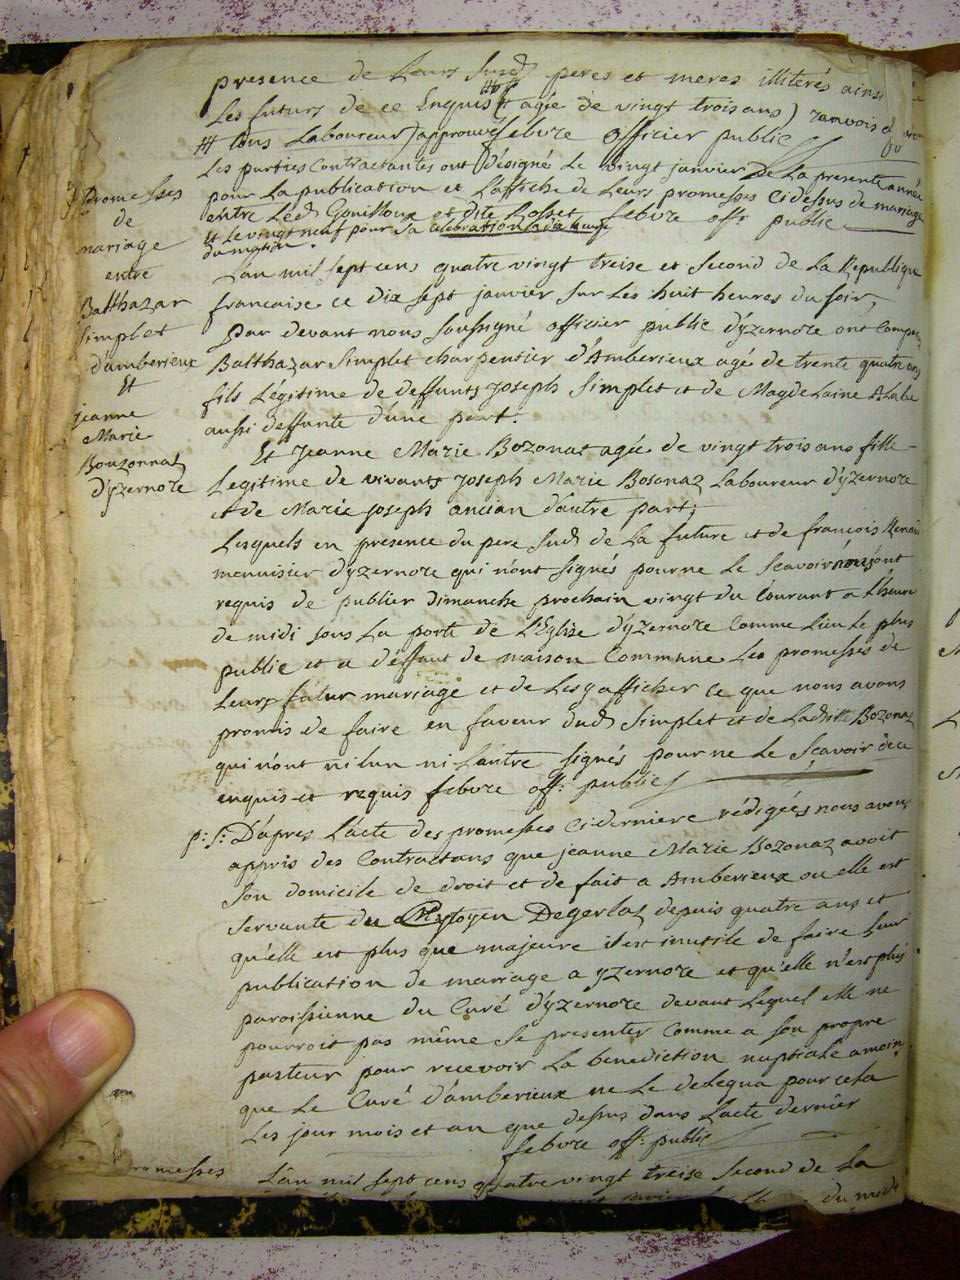 presence de Leurs Susd peres et meres illiterés ainsi
Les futurs de ce Enquis # agée de vingt trois ans)
# tous Laboureur) approuvé febvre officier public
Les parties Contractantes ont désigné Le vingt janvier De La presente année
pour La publication et L'affiche de Leurs promesses Cidessus de mariage
entre Led Gouilloux et dite Rosset febvre off: public
et Le vingt neuf pour Sa Celebration
du matin.
Promesses
de
mariage
entre
Balthazar
Simplet
d'amberieux
Et
jeanne
Marie
Bouzonnaz
D'yzernore
Lan mil sept cens quatre vingt treise et second de La Republique
francaise ce dix sept janvier sur Les huit heures du soir,
par devant nous soussigné officier public d'yzernore ont Comparu
Balthazar Simplet charpentier d'Amberieux agé de trente quatre ans
fils Légitime de deffunts joseph Simplet et de Magdelaine
aussi deffunte d'une part.
Et jeanne Marie Bozonaz agée de vingt trois ans fille
Legitime de vivants joseph Marie Bosonaz Laboureur D'yzernore
et de Marie joseph ancian d'autre part;
Lesquels en presence du pere Sud de La future et de francois
menuisier d'yzernore qui n'ont signés pour ne Le Scavoir nous ont
requis de publier Dimanche prochain vingt du Courant a L'heure
de midi sous La porte de L'Eglise d'yzernore Comme Lieu Le plus
public et a deffaut de maison Commune Les promesses de
Leurs futur mariage et de Les y afficher ce que nous avons
promis de faire en faveur dud Simplet et de Ladite Bozonaz
qui n'ont ni Lun ni Lautre signés pour ne Le Scavoir de ce
enquis et requis febvre off: public
p: s: D'apres L'acte des promesses Ciderniere rédigées nous avons
appris des Contractans que jeanne Marie Bozonaz avoit
son domicile de droit et de fait a Amberieux ou elle est
servante du Citoyen Degerlaz depuis quatre ans et
qu'elle est plus que majeure il est inutile de faire Leur
publication de mariage a yzernore et qu'elle n'est plus
paroissienne du Curé D'yzernore devant Lequel elle ne
pourroit pas même se presenter Comme a son propre
pasteur pour recevoir La benediction nuptiale amoin
que Le Curé d'amberieux ne Le delegua pour cela
Les jour mois et an que dessus dans L'acte dernier
febvre off: public
promesses
Lan mil sept cens quatre vingt treise second de La